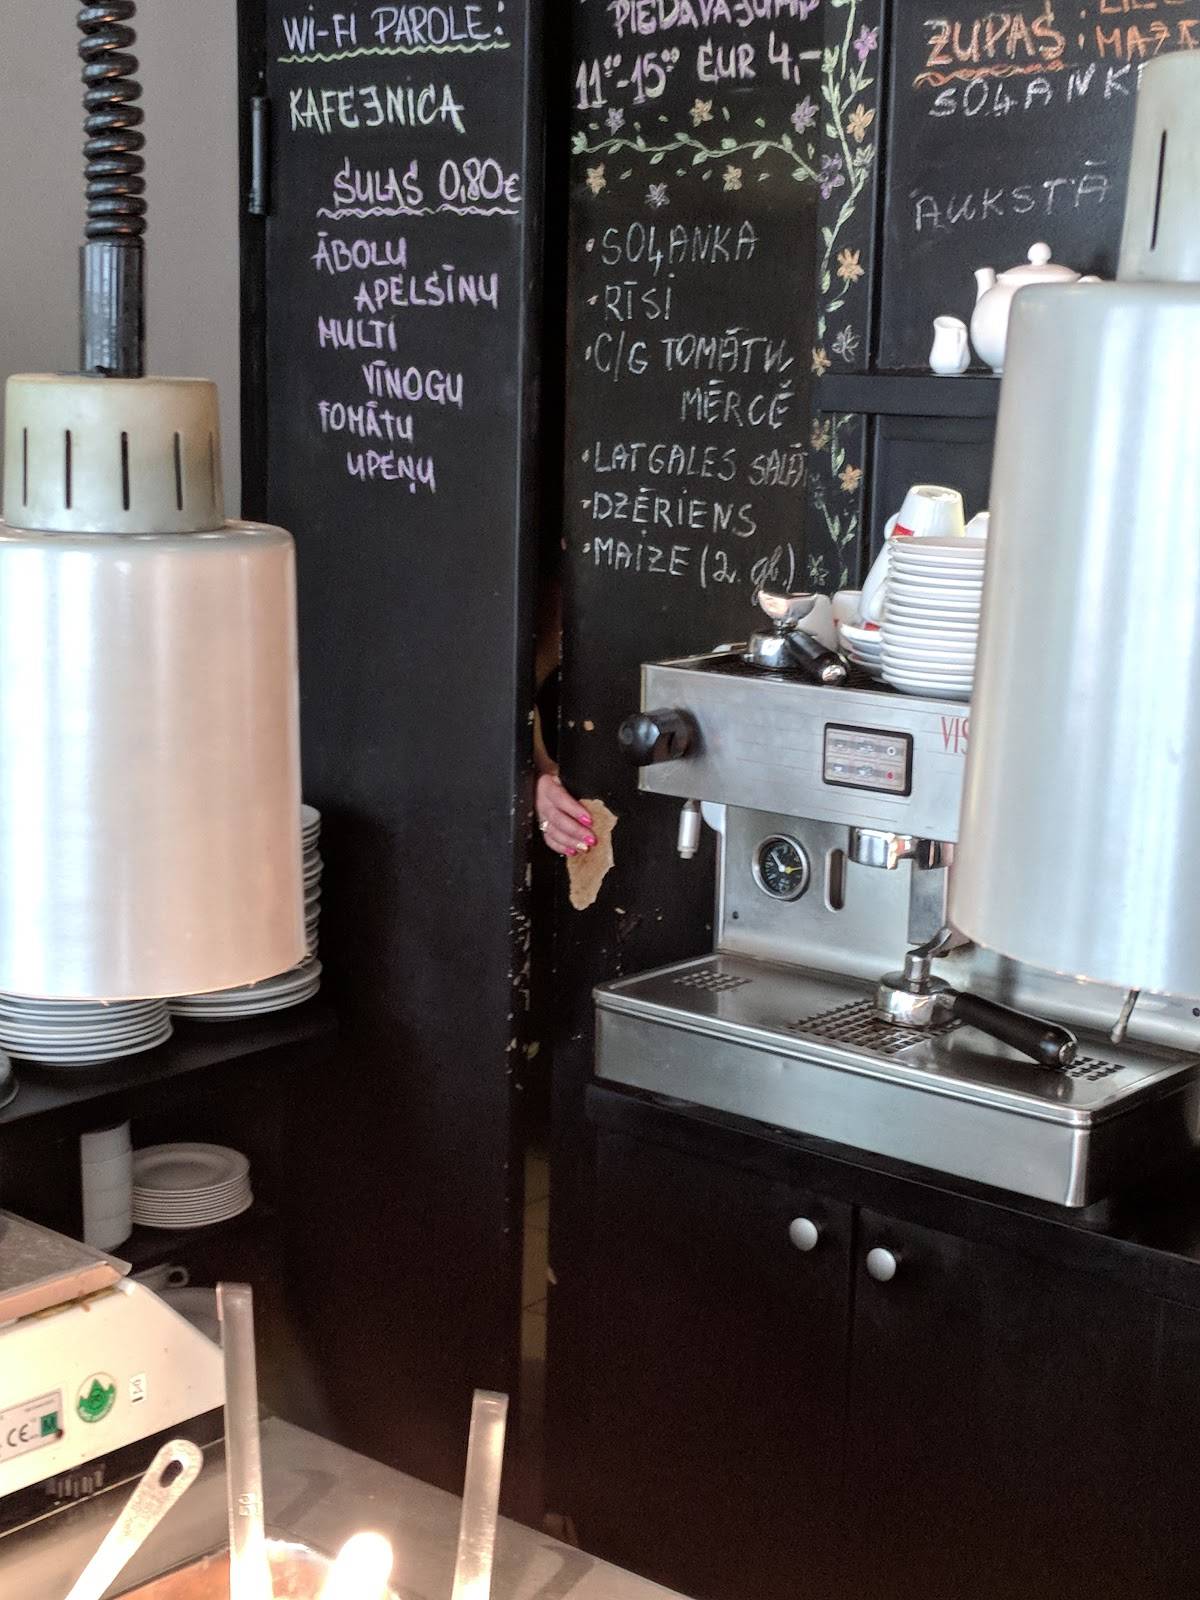 WI-FI PAROLE:
KAFEJNICA
SULAS 0,80€
ĀBOLU
APELSĪNU
MULTI
VĪNOGU
TOMĀTU
UPEŅU
PIEDĀVĀJUMS
11⁰⁰-15⁰⁰ EUR 4,-
• SOĻANKA
• RĪSI
• C/G TOMĀTU
MĒRCĒ
• LATGALES SALĀT
• DZĒRIENS
• MAIZE (2. gb.)
ZUPAS:
SOĻANK
AUKSTĀ
VIS
CE M